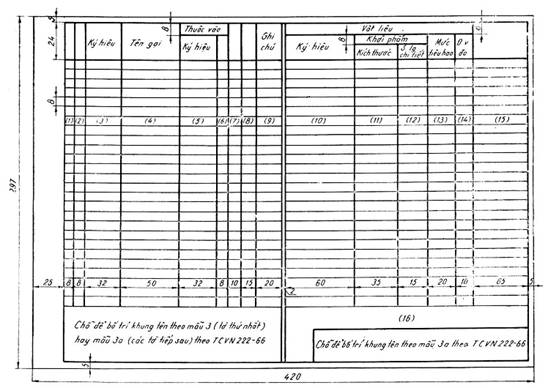 5
8
Thuộc vào
Ghi
chú
Vật liệu
Khởi phẩm
24
Ký hiệu
Tên gọi
Ký hiệu
Ký hiệu
8
Kích thước
S. lg
chi tiết
Mức
tiêu hao
Đ.v
đo
8
(1)
(2)
(3)
(4)
(5)
(6)
(7)
(8)
(9)
(10)
(11)
(12)
(13)
(14)
(15)
297
25
8
8
32
50
32
8
10
15
20
2
60
35
15
20
10
65
5
(16)
Chỗ để bố trí khung tên theo mẫu 3 (tờ thứ nhất)
hay mẫu 3a (các tờ tiếp sau) theo TCVN 222-66
Chỗ để bố trí khung tên theo mẫu 3a theo TCVN 222-66
5
420